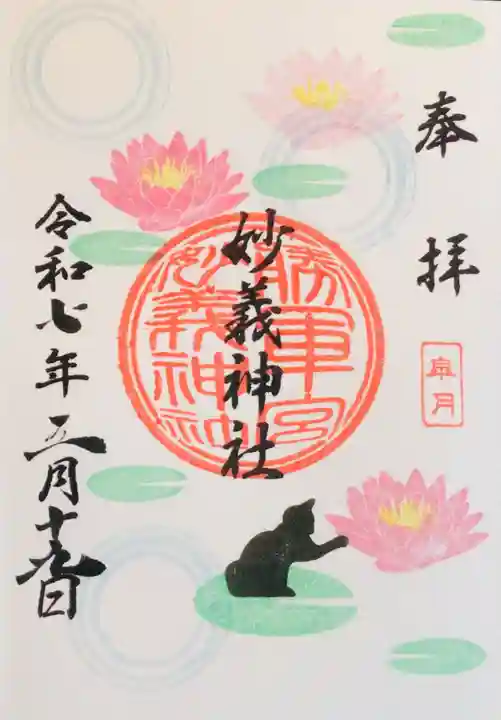 奉拝
皐月
妙義神社
勝軍宮
妙義神社
令和七年五月十九日